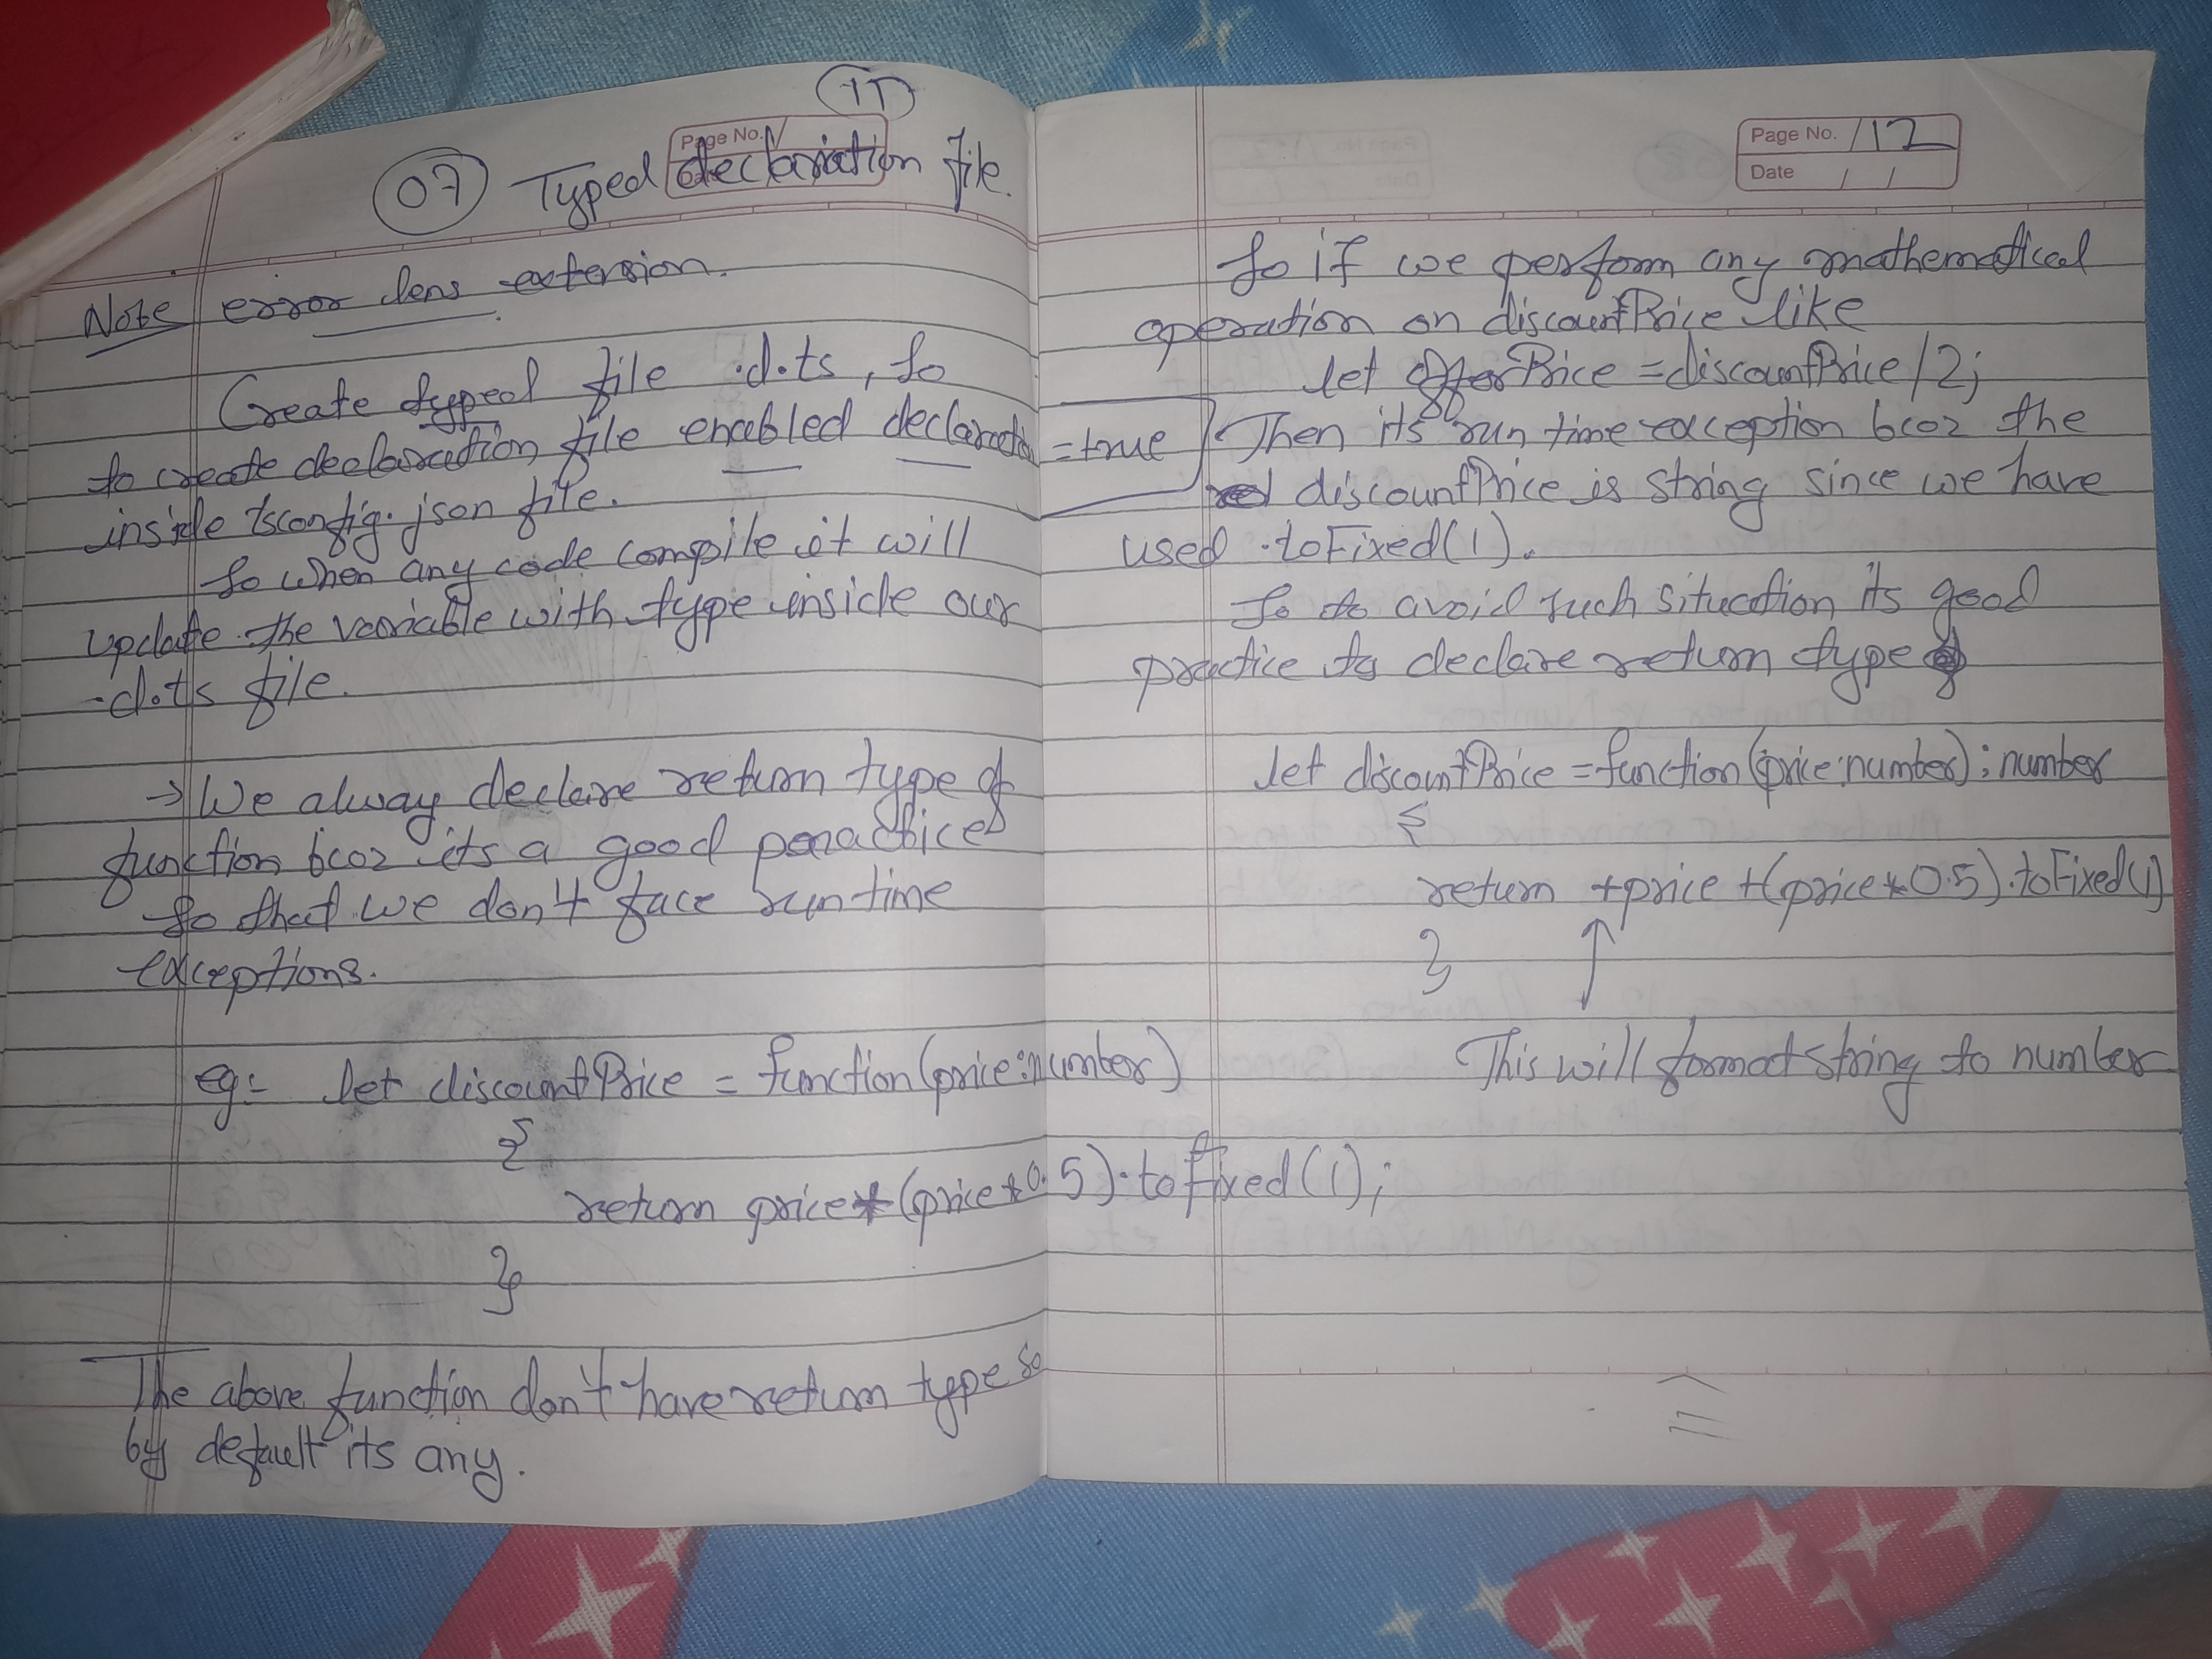 11
Page No.
07 Typed declaration file.
Note error lens extension.
Create typed file .d.ts, So
to create declaration file enabled declaration = true
inside tsconfig.json file.
So when any code compile it will
update the variable with type inside our
.d.ts file.
→ We alway declare return type of
function bcoz its a good practice
So that we don't face run time
exceptions.
eg:- let discountPrice = function(price:number)
{
return price + (price * 0.5).toFixed(1);
}
The above function don't have return type so
by default its any.
Page No. 12
Date / /
So if we perform any mathematical
operation on discountPrice like
let offerPrice = discountPrice/2;
Then its run time exception bcoz the
discountPrice is string since we have
used .toFixed(1).
So to avoid such situation its good
practice to declare return type
let discountPrice = function(price:number):number
{
return +price +(price*0.5).toFixed(1)
}
↑
This will format string to number